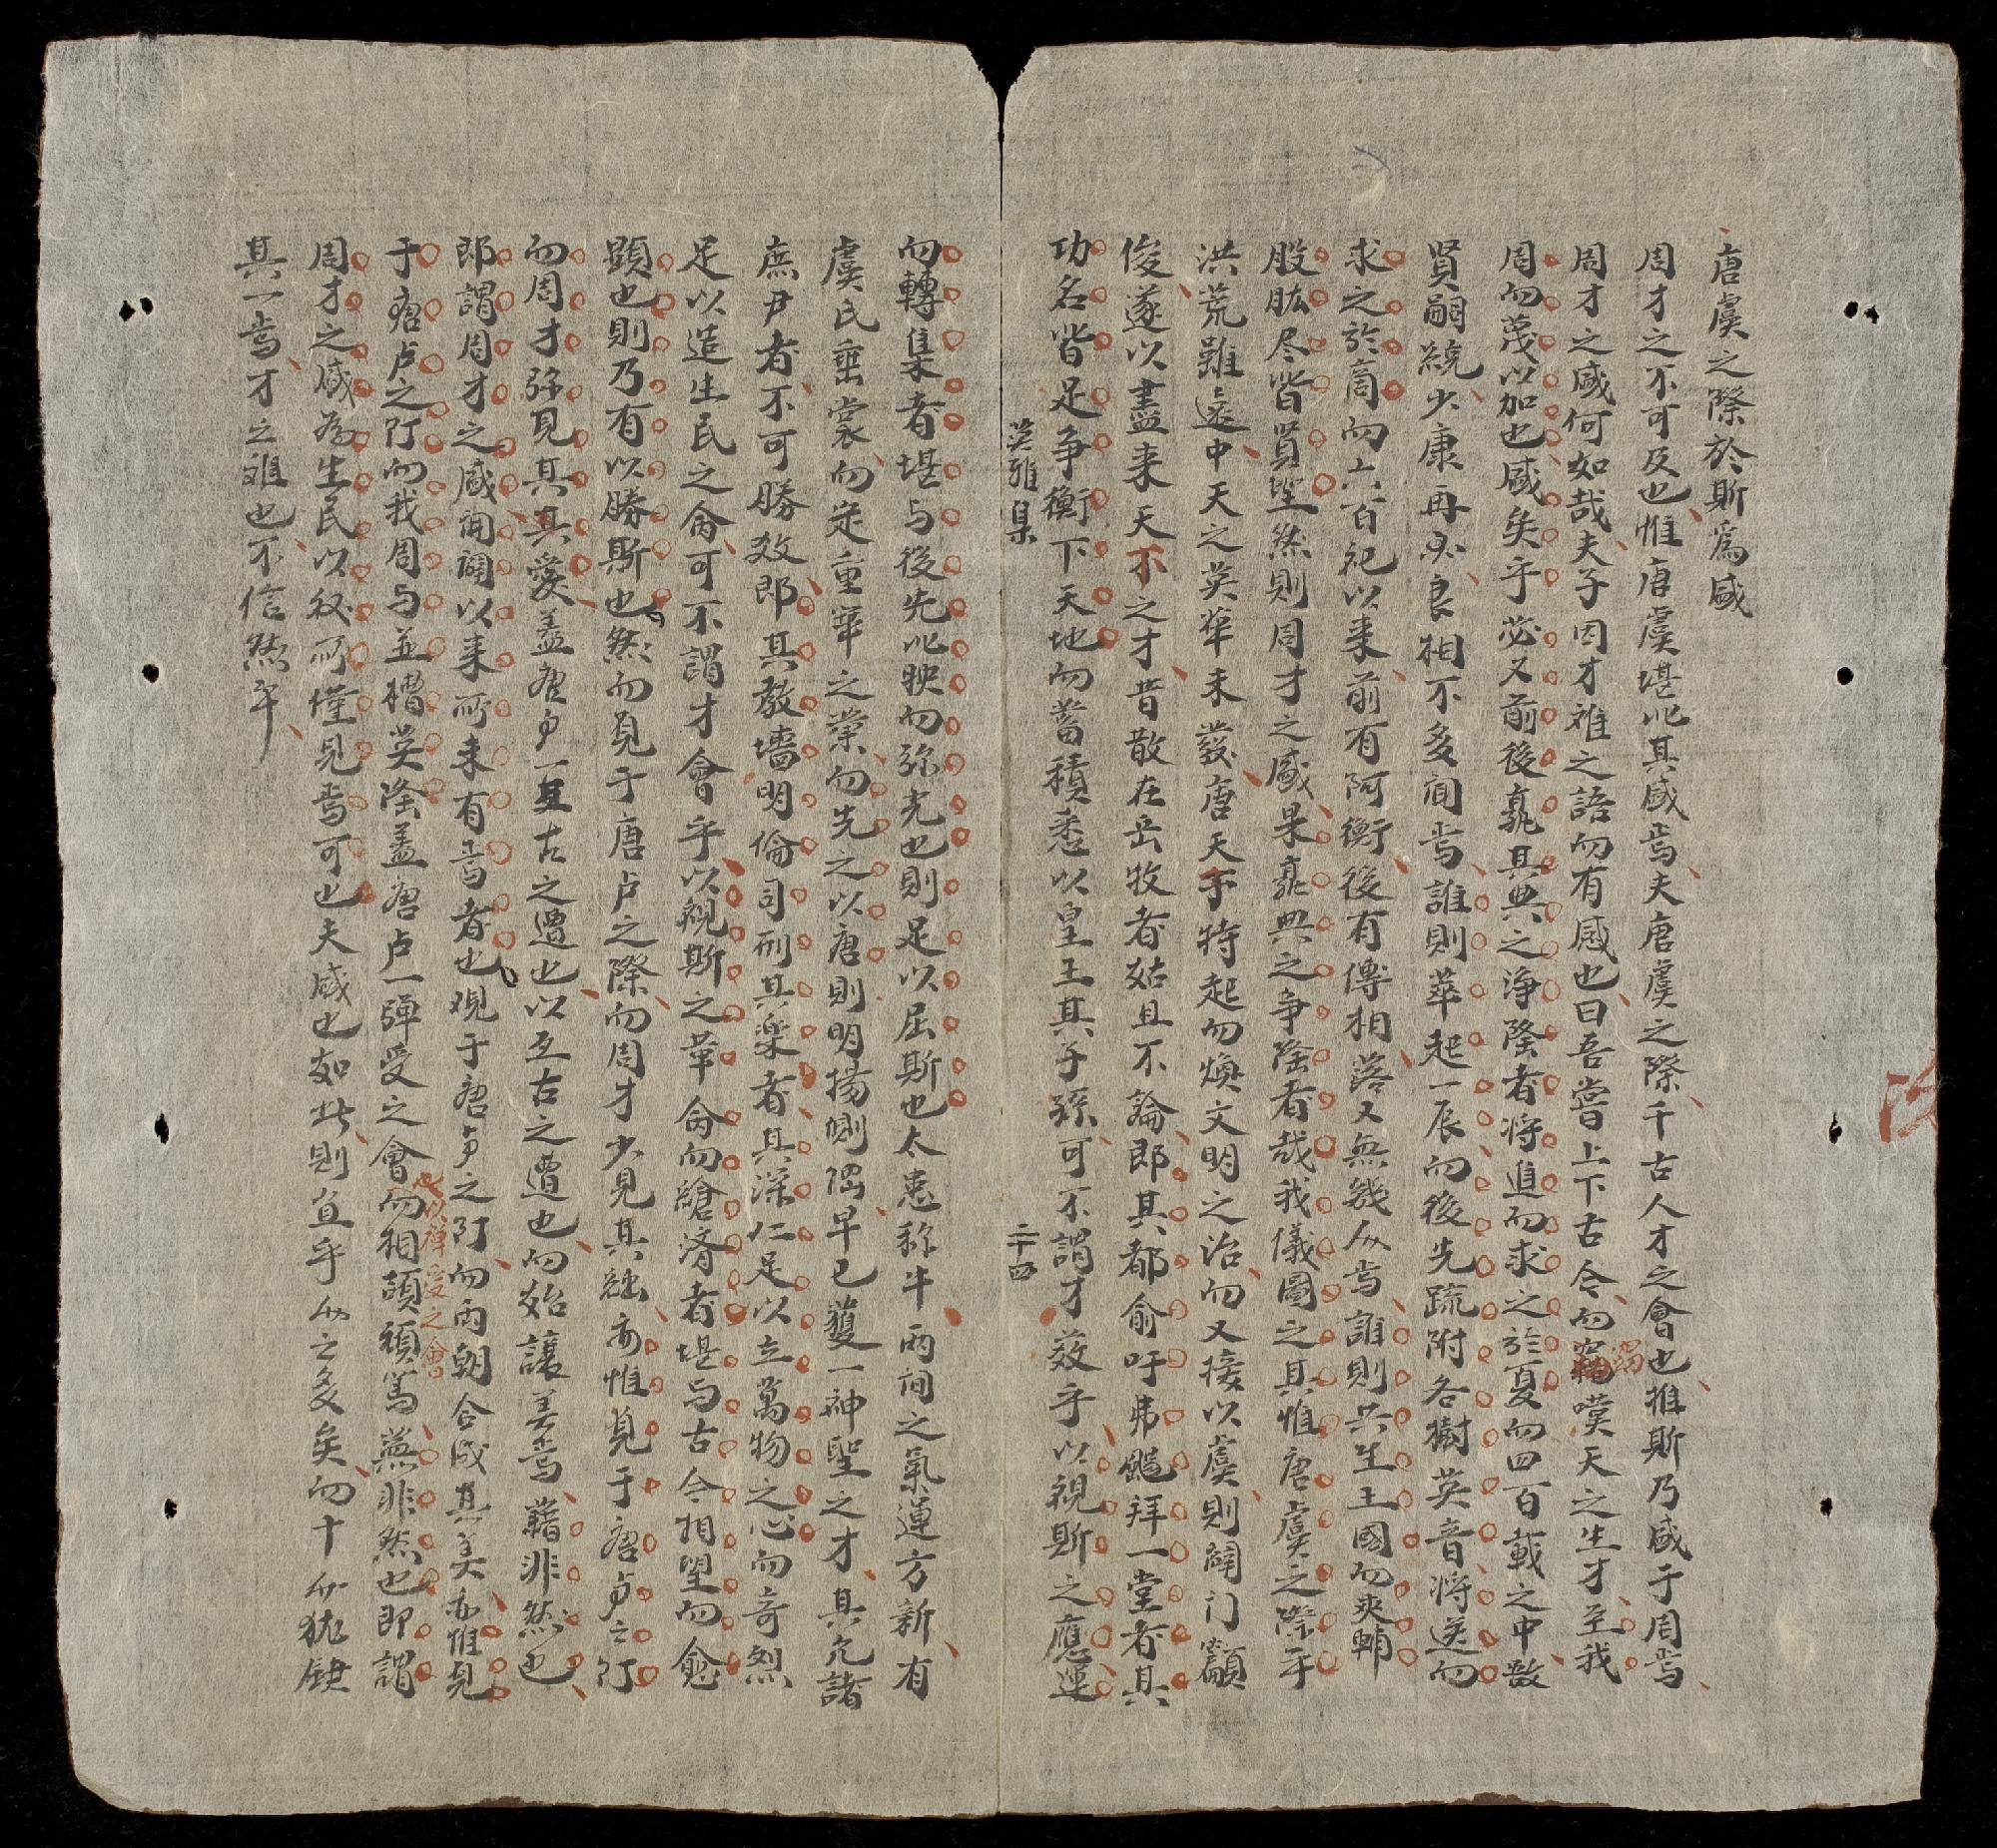 唐虞之際於斯爲盛
周才之不可及也惟唐虞堪比其盛焉夫唐虞之際千古人才之會也推斯乃盛于周焉
周才之盛何如哉夫子因才难之語而有感也曰吾嘗上下古今而竊嘆天之生才至我
周而蔑以加也盛矣乎茲又前後竟其與之淨隆者將進而求之於夏而四百載之中啟
賢嗣統少康再亦良相不多闻焉誰則萃起一辰而後先疏附各樹英音將送而
求之於商而六百祀以来前有阿衡後有傅相落又無幾人焉誰則共生王國而爽輔
股肱尽皆賢聖然則周才之盛果竟與之争隆者哉我儀圖之其惟唐虞之際乎
洪荒雖遠中天之英華未發唐天子特起而焕文明之治而又接以虞則闢门籲
俊遂以盡来天下之才昔散在岳牧者姑且不論即其都俞吁弗颺拜一堂者其
功名皆足争衡下天地而蓄積悉以皇王其子孫可不謂才效乎以視斯之應運
英雅集
二十四
而轉集者堪与後先比映而弥光也則足以屈斯也太悳称牛兩间之氣運方新有
虞氏垂裳而定重華之業而先之以唐則明揚側陋早已蘐一神聖之才其允諸
庶尹者不可勝效即其教墻明倫司刑其楽者其深仁足以立萬物之心而奇烈
足以造生民之侖可不謂才會乎以覘斯之革侖而艙濟者堪与古今相望而愈
顕也則乃有以勝斯也然而見于唐卢之際而周才少見其絀而惟見于唐卢之阝丁
而周才弥見其其愛盖唐卢一亘古之遭也以亙古之遭也而始讓美焉藉非然也
即謂周才之盛開闢以来所来有焉者也观于唐卢之阝丁而兩朝合成其美亦惟見
于唐卢之阝丁而我周与並槽英隆盖唐卢一彈受之會而相頡頏焉無非然也即謂
也以禅受之會
周才之盛為生民以後所堇見焉可也夫盛也如此則宜乎人之多矣而十人犹歉
其一焉才之难也不信然乎